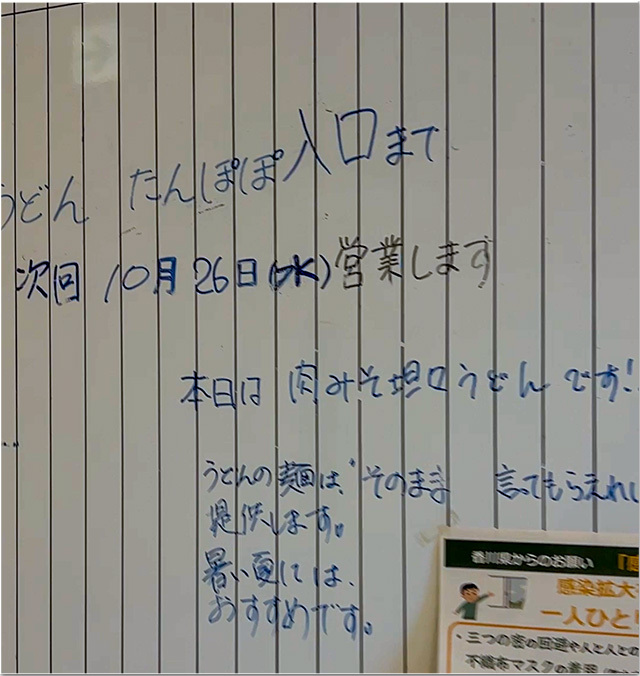 うどん たんぽぽ入口まで
次回 10月26日(水)営業します
本日は 肉みそ坦々うどんです!
うどんの麺は、"そのまま 言ってもらえれ
提供します。
暑い夏には、
おすすめです。
香川県からのお願い
感染拡大
一人ひと
・三つの密の回避や人と人との
不織布マスクの着用